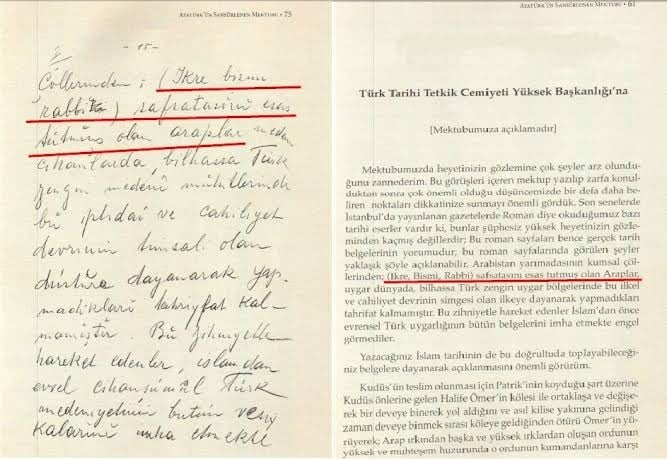 ATATÜRK'ÜN SANSÜRLENEN MEKTUBU • 75
- 15 -
Çöllerinden ; (İkre bismi
rabbik) safsatasını esas
tutmuş olan araplar meden
cihanlarda, bilhassa Türk
zengin medenî mühitlerinde
bu iptidaî ve cahiliyet
devrinin timsali olan
düstüra dayanarak yap-
madıkları tahrifat kal-
mamıştır. Bu zihniyetle
hareket edenler, islamdan
evvel cihanşümûl Türk
medeniyetinin bütün vesi
kalarını imha etmekte
ATATÜRK'ÜN SANSÜRLENEN MEKTUBU • 61
Türk Tarihi Tetkik Cemiyeti Yüksek Başkanlığı'na
[Mektubumuza açıklamadır]
Mektubumuzda heyetinizin gözlemine çok şeyler arz olundu-
ğunu zannederim. Bu görüşleri içeren mektup yazılıp zarfa konul-
duktan sonra çok önemli olduğu düşüncemizde bir defa daha be-
liren noktaları dikkatinize sunmayı önemli gördük. Son senelerde
İstanbul'da yayınlanan gazetelerde Roman diye okuduğumuz bazı
tarihi eserler vardır ki, bunlar şüphesiz yüksek heyetinizin gözle-
minden kaçmış değillerdir; Bu roman sayfaları bence gerçek tarih
belgelerinin yorumudur; bu roman sayfalarında görülen şeyler
yaklaşık şöyle açıklanabilir. Arabistan yarımadasının kumsal çöl-
lerinden; (İkre, Bismi, Rabbi) safsatasını esas tutmuş olan Araplar,
uygar dünyada, bilhassa Türk zengin uygar bölgelerinde bu ilkel
ve cahiliyet devrinin simgesi olan ilkeye dayanarak yapmadıkları
tahrifat kalmamıştır. Bu zihniyetle hareket edenler İslam'dan önce
evrensel Türk uygarlığının bütün belgelerini imha etmekte engel
görmediler.
Yazacağınız İslam tarihinin de bu doğrultuda toplayabileceği-
niz belgelere dayanarak açıklanmasını önemli görürüm.
Kudüs'ün teslim olunması için Patrik'inin koyduğu şart üzerine
Kudüs önlerine gelen Halife Ömer'in kölesi ile ortaklaşa ve değişe-
rek bir deveye binerek yol aldığını ve asıl kilise yakınına gelindiği
zaman deveye binmek sırası köleye geldiğinden ötürü Ömer'in yü-
rüyerek; Arap ırkından başka ve yüksek ırklardan oluşan ordunun
yüksek ve muhteşem huzurunda o ordunun kumandanlarına karşı